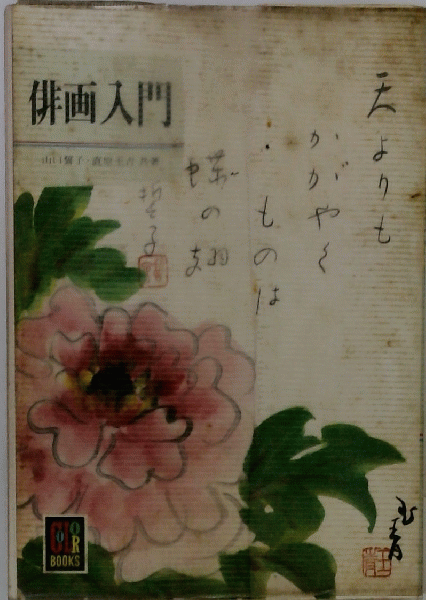 俳画入門
山口誓子・直原玉青 共著
天よりも
かがやく
ものは
蝶の翅
誓子
玉青
COLOR
BOOKS